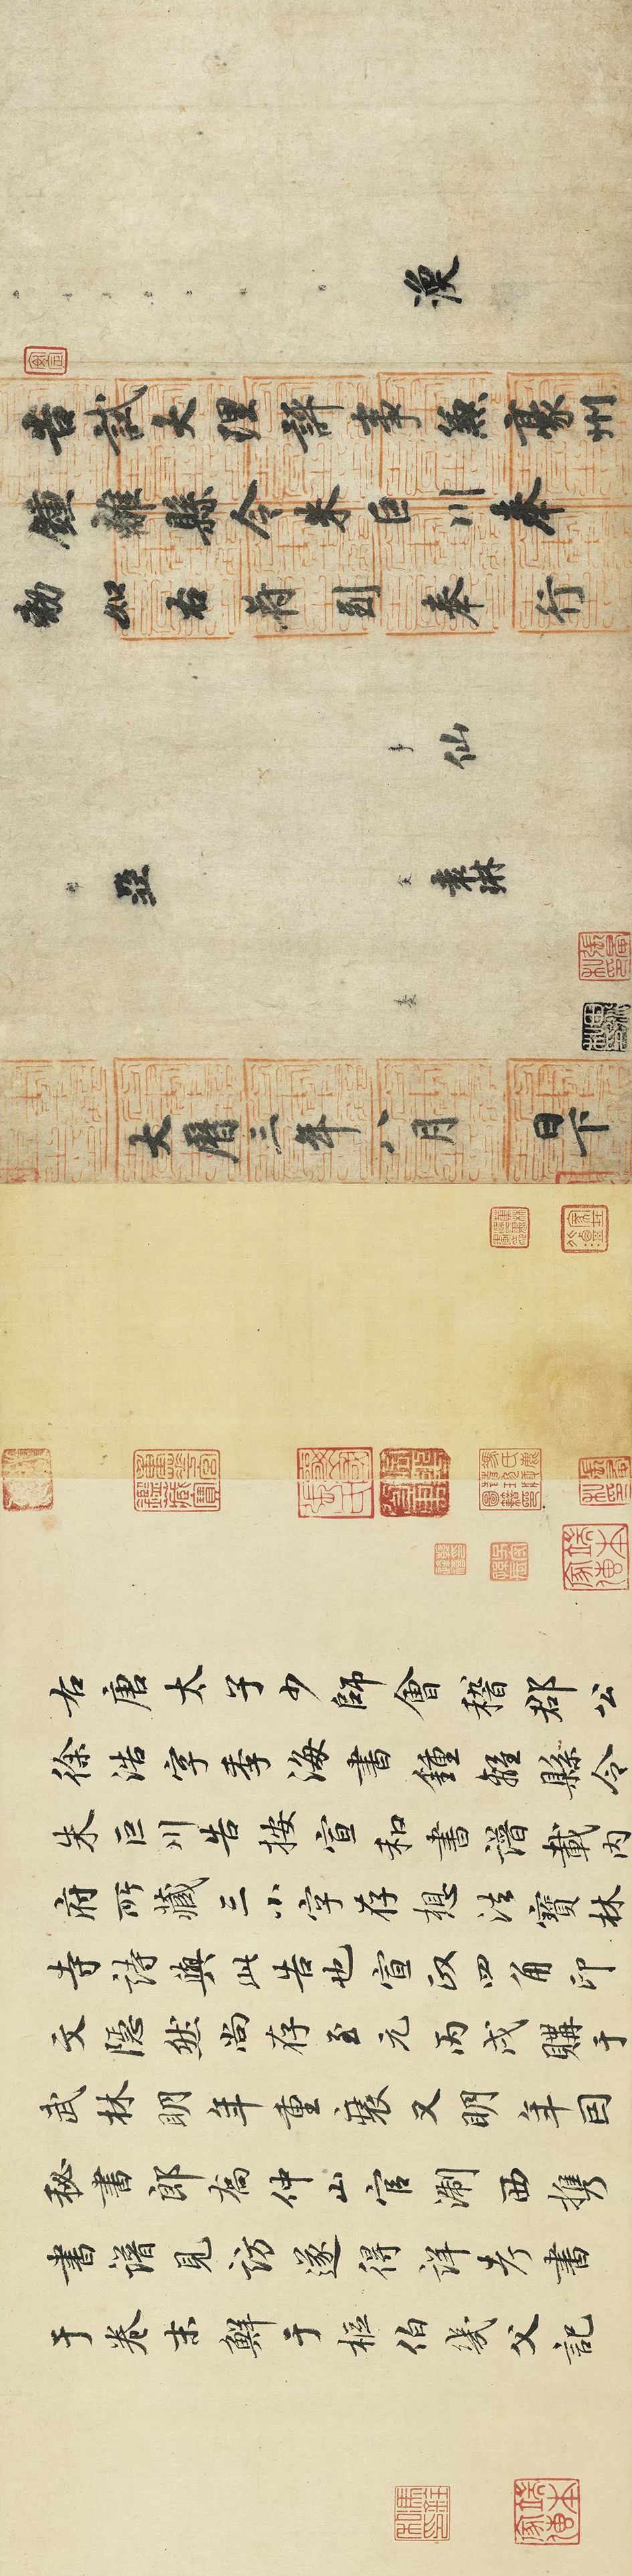 渙
告試大理評事兼豪州
鍾離縣令朱巨川奉
勅如右符到奉行
仙
亞 袁琳
大曆三年八月 日下
右唐太子少師會稽郡公
徐浩字季海書鍾離縣令
朱巨川告按宣和書譜載内
府所藏三小字存想法寶林
寺詩與此告也宣政四角印
文隱然尚存至元丙戌購于
武林明年重裝又明年因
秘書郎喬仲山官淛西携
書譜見訪遂得詳考書
于卷末鮮于樞伯幾父記